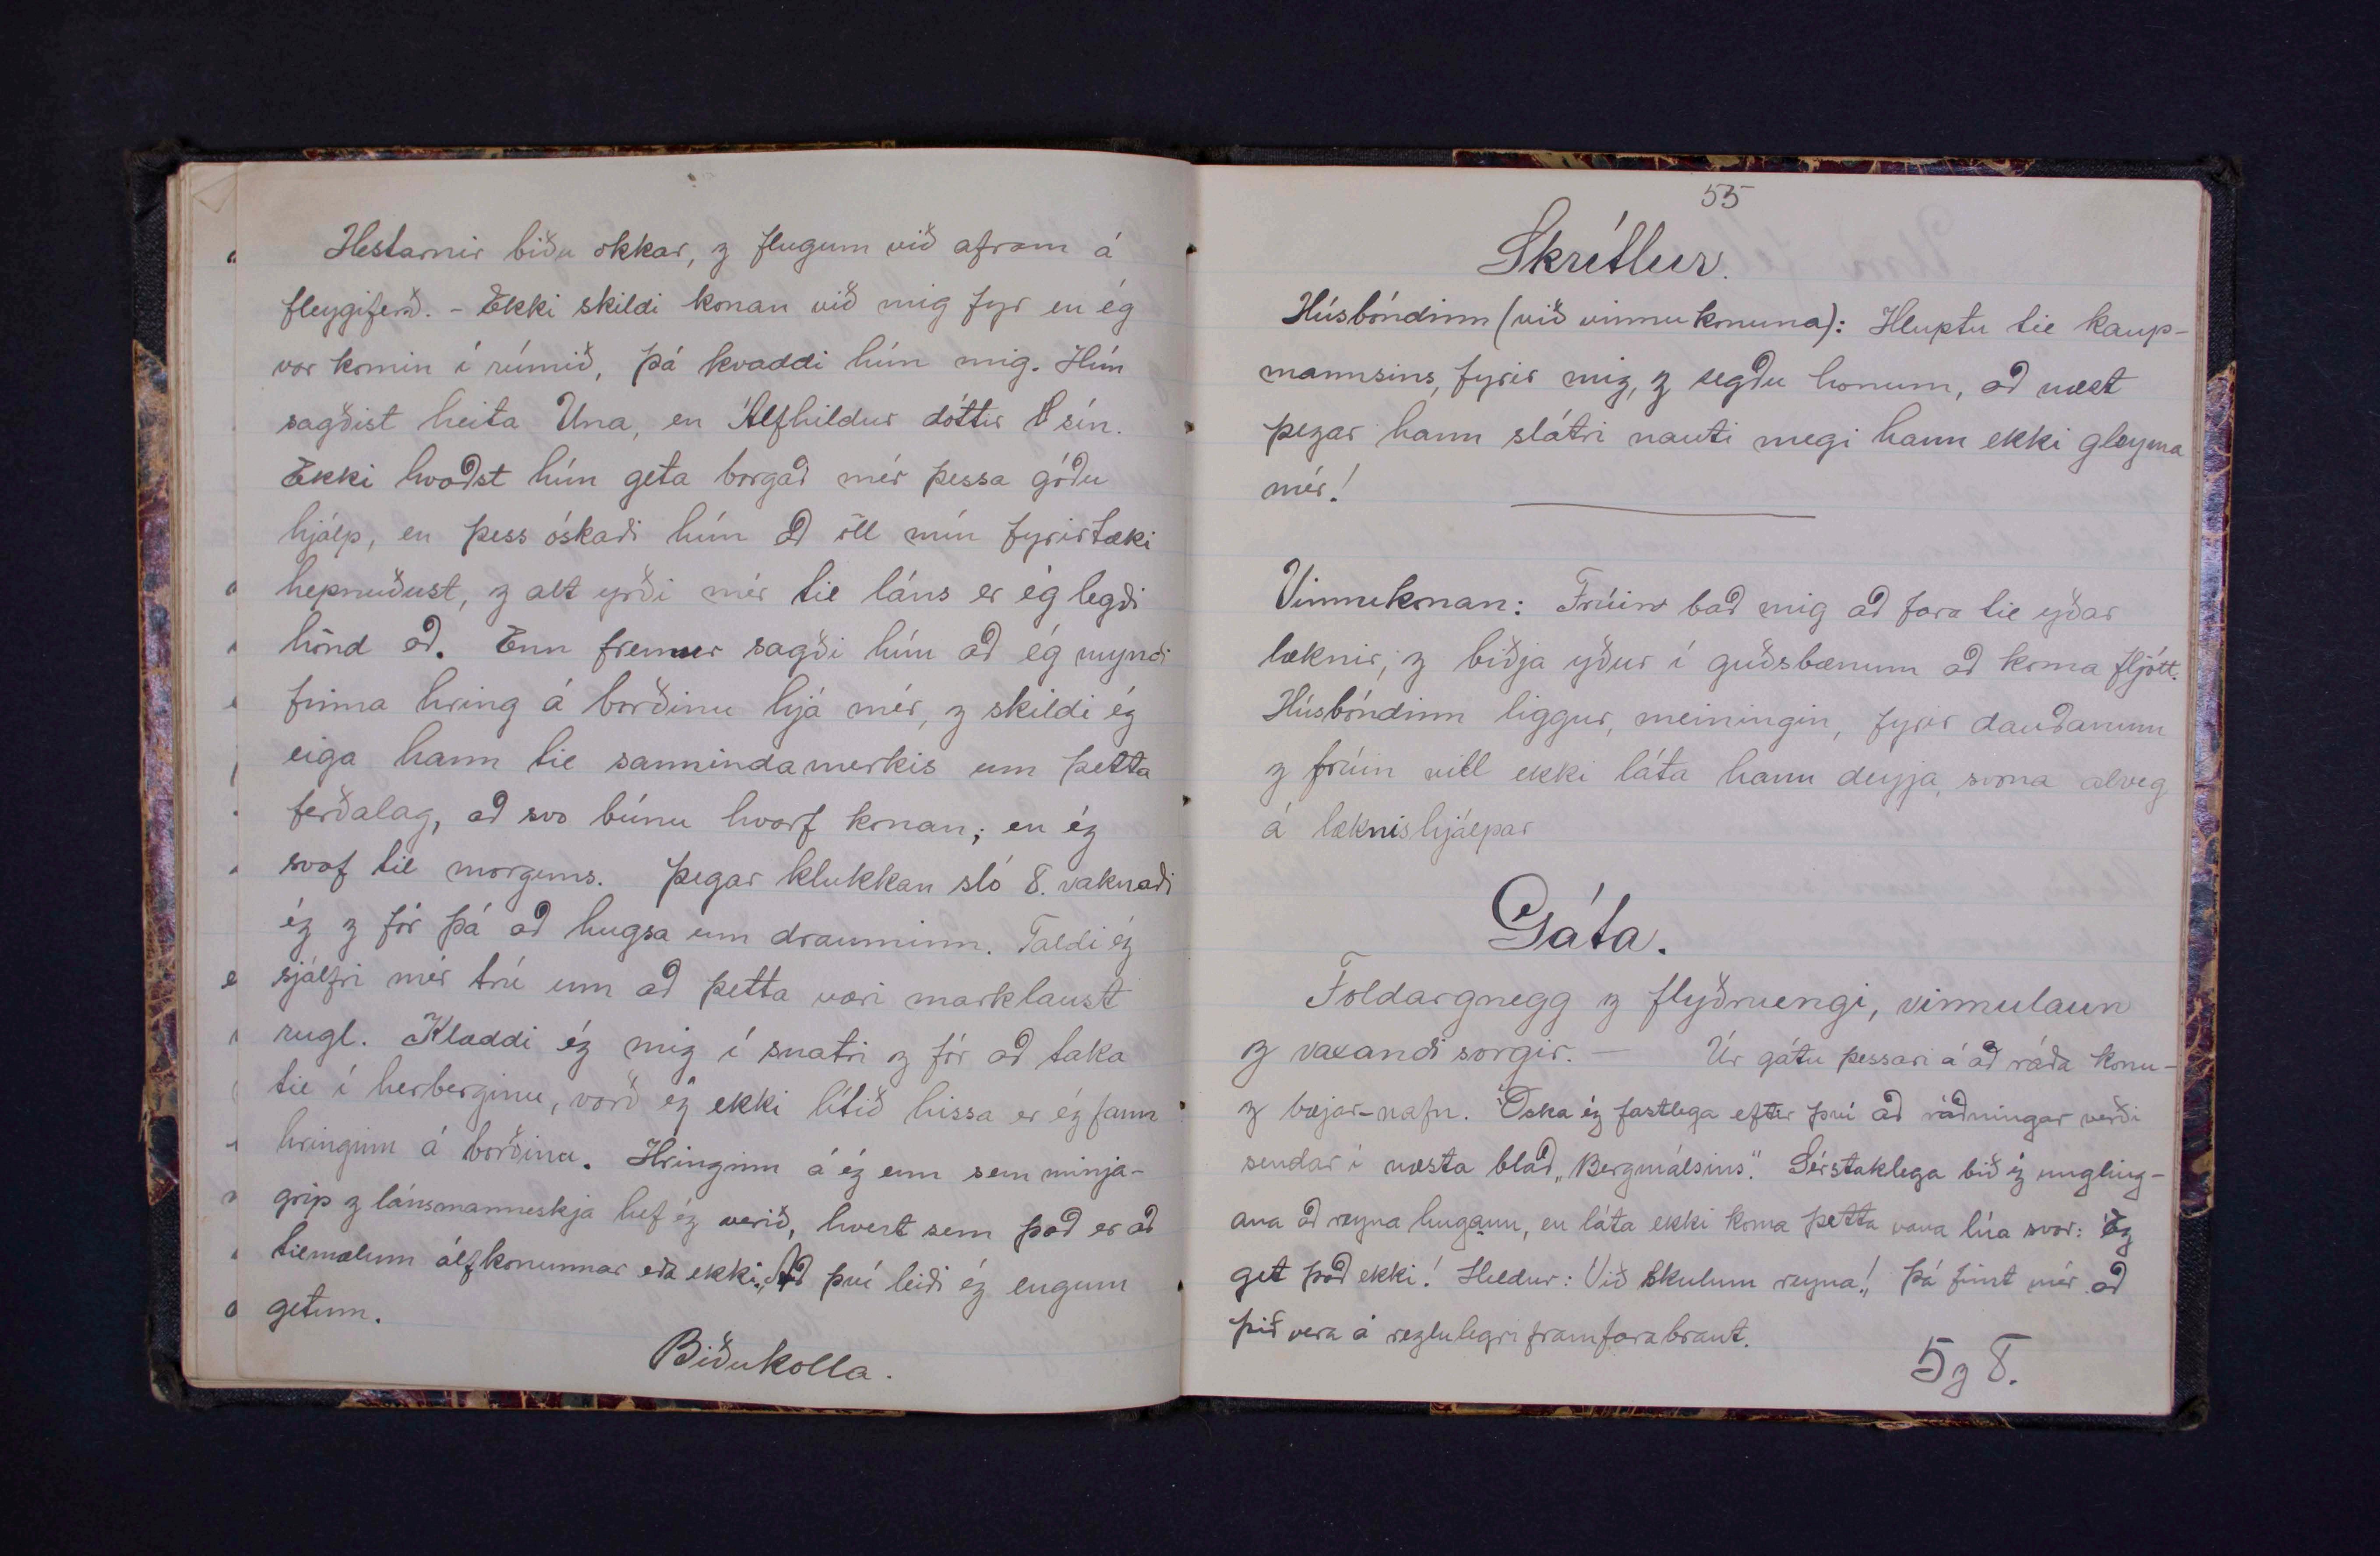 Hestarnir biðu okkar, z flugum við afram á
fleygiferð. - Ekki skildi konan við mig fyr en ég
var komin í rúmið, þá kvaddi hún mig. Hún
sagðist heita Una, en Álfhildur dóttir sín.
Ekki kvaðst hún geta borgað mér þessa góðu
hjálp, en þess óskaði hún að öll mín fyrirtæki
hepnuðust, z alt yrði mér til láns er ég legði
hönd að. Enn fremur sagði hún að ég myndi
finna hring á borðinu hjá mér, z skildi ég
eiga hann til sannindamerkis um þetta
ferðalag, að svo búnu hvarf konan; en ég
svaf til morguns. Þegar klukkan sló 8. vaknaði
ég z fór þá að hugsa um drauminn. Taldi ég
sjálfri mér trú um að þetta væri marklaust
rugl. Klæddi ég mig í snatri z fór að taka
til í herberginu, varð ég ekki lítið hissa er ég fann
hringinn á borðinu. Hringinn á ég enn sem minja-
grip z lánsmanneskja hef ég verið, hvert sem það er að
tilmælum álfkonunnar eða ekki. Að því leiði ég engum
getum.
Biðukolla.
55
Skrítlur.
Húsbóndinn (við vinnukonuna): Hluptu til kaup-
mannsins, fyrir mig, z segðu honum, að næst
þegar hann slátri nauti megi hann ekki gleyma
mér!
Vinnukonan: Frúin bað mig að fara til yðar
læknir, z biðja yður í guðsbænum að koma fljótt.
Húsbóndinn liggur, meiningin, fyrir dauðanum
z frúin vill ekki láta hann deyja, svona alveg
á læknishjálpar
Gáta.
Foldargnegg z flyðruengi, vinnulaun
z vaxandi sorgir. - Úr gátu þessari á að ráða konu-
z bæjar-nafn. Óska ég fastlega eftir því að ráðningar verði
sendar í næsta blað „Bergmálsins". Sérstaklega bið ég ungling-
ana að reyna hugann, en láta ekki koma þetta vana lúa svar: Ég
get það ekki! Heldur: Við skulum reyna! Þá finst mér að
þið vera á reglulegri framfarabraut.
5 z 8.